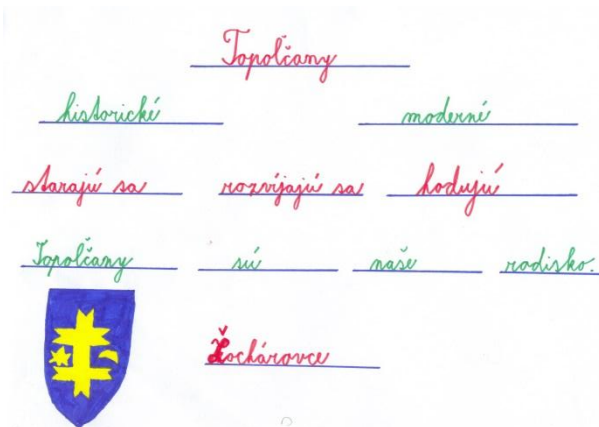 Topoľčany
historické moderné
starajú sa rozvíjajú sa hodujú
Topoľčany sú naše rodisko.
Žochárovce